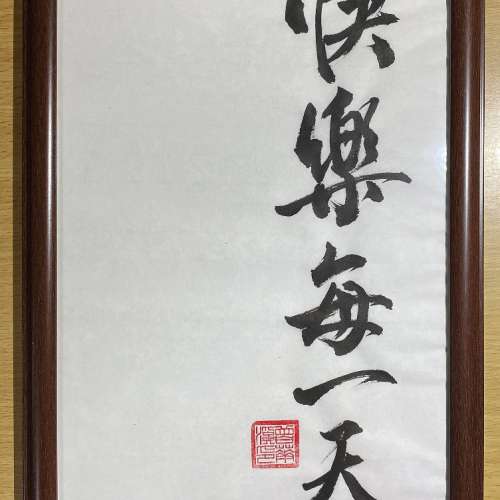 快樂每一天